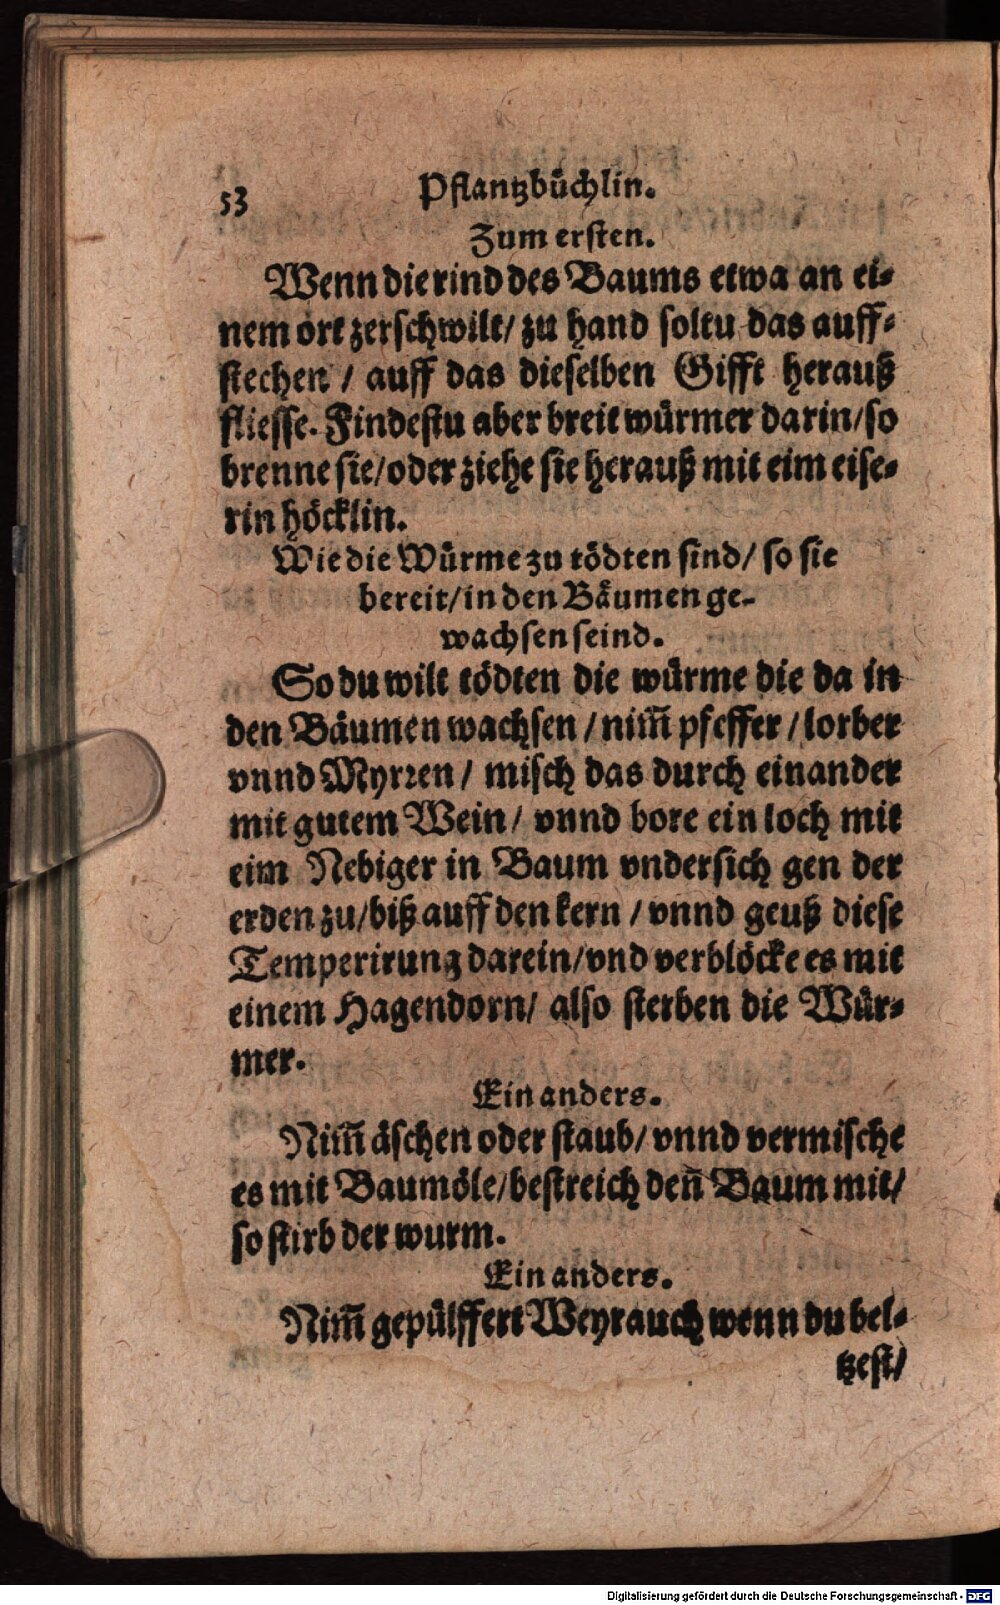 53 Pflantzbůchlin.
Zum ersten.
Wenn die rind des Baums etwa an ei-
nem ort zerschwilt/ zu hand soltu das auff-
stechen / auff das dieselben Gifft herauß
fliesse. Findestu aber breit würmer darin/ so
brenne sie/ oder ziehe sie herauß mit eim eise-
rin höcklin.
Wie die Würme zu tödten sind/ so sie
bereit/ in den Bäumen ge-
wachsen seind.
So du wilt tödten die würme die da in
den Bäumen wachsen / nim̃ pfeffer / lorber
vnnd Myrren / misch das durch einander
mit gutem Wein/ vnnd bore ein loch mit
eim Nebiger in Baum vndersich gen der
erden zu/ biß auff den kern / vnnd geuß diese
Temperirung darein/ vnd verblöcke es mit
einem Hagendorn/ also sterben die Wür-
mer.
Ein anders.
Nim̃ äschen oder staub/ vnnd vermische
es mit Baumöle/ bestreich deñ Baum mit/
so stirb der wurm.
Ein anders.
Nim̃ gepülffert Weyrauch wenn du bel-
tzest/
Digitalisierung gefördert durch die Deutsche Forschungsgemeinschaft - DFG